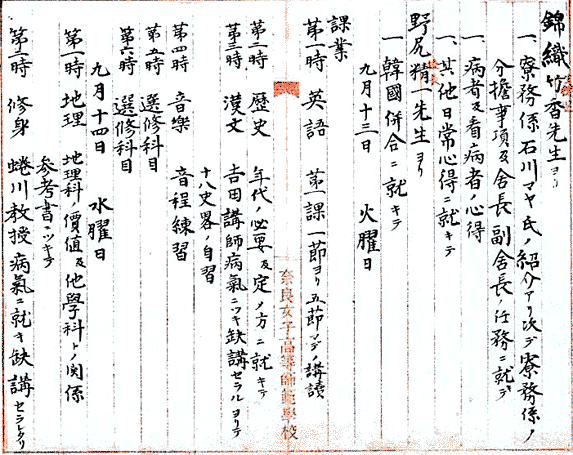 錦織竹香先生ヨリ
一、寮務係石川マヤ氏ノ紹介アリ次デ寮務係ノ
分擔事項及舍長副舍長任務ニ就キ
一、病者及看病者ノ心得
一、其他日常心得ニ就キテ
野尻精一先生ヨリ
一、韓國併合ニ就キテ
九月十三日 火曜日
課業
第一時 英語 第一課一節ヨリ五節マデノ講讀
第二時 歴史 年代ノ必要及定メ方ニ就キテ
第三時 漢文 吉田講師病氣ニツキ缺講セラルヨリテ
十八史畧ノ自習
第四時 音樂 音程練習
第五時 選修科目
第六時 選修科目
九月十四日 水曜日
第一時 地理 地理科ノ價値及他學科トノ関係
参考書ニツキテ
第二時 修身 蜷川教授病氣ニ就キ缺講セラレタリ
奈良女子高等師範學校